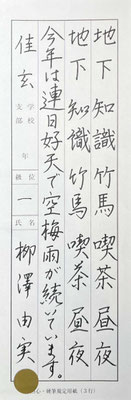 地下知識竹馬喫茶昼夜
地下知識竹馬喫茶昼夜
今年は連日好天で空梅雨が続いています。
佳玄 支部 学校 年 級位 一 氏名 柳澤由実
心・硬筆規定用紙(3行)